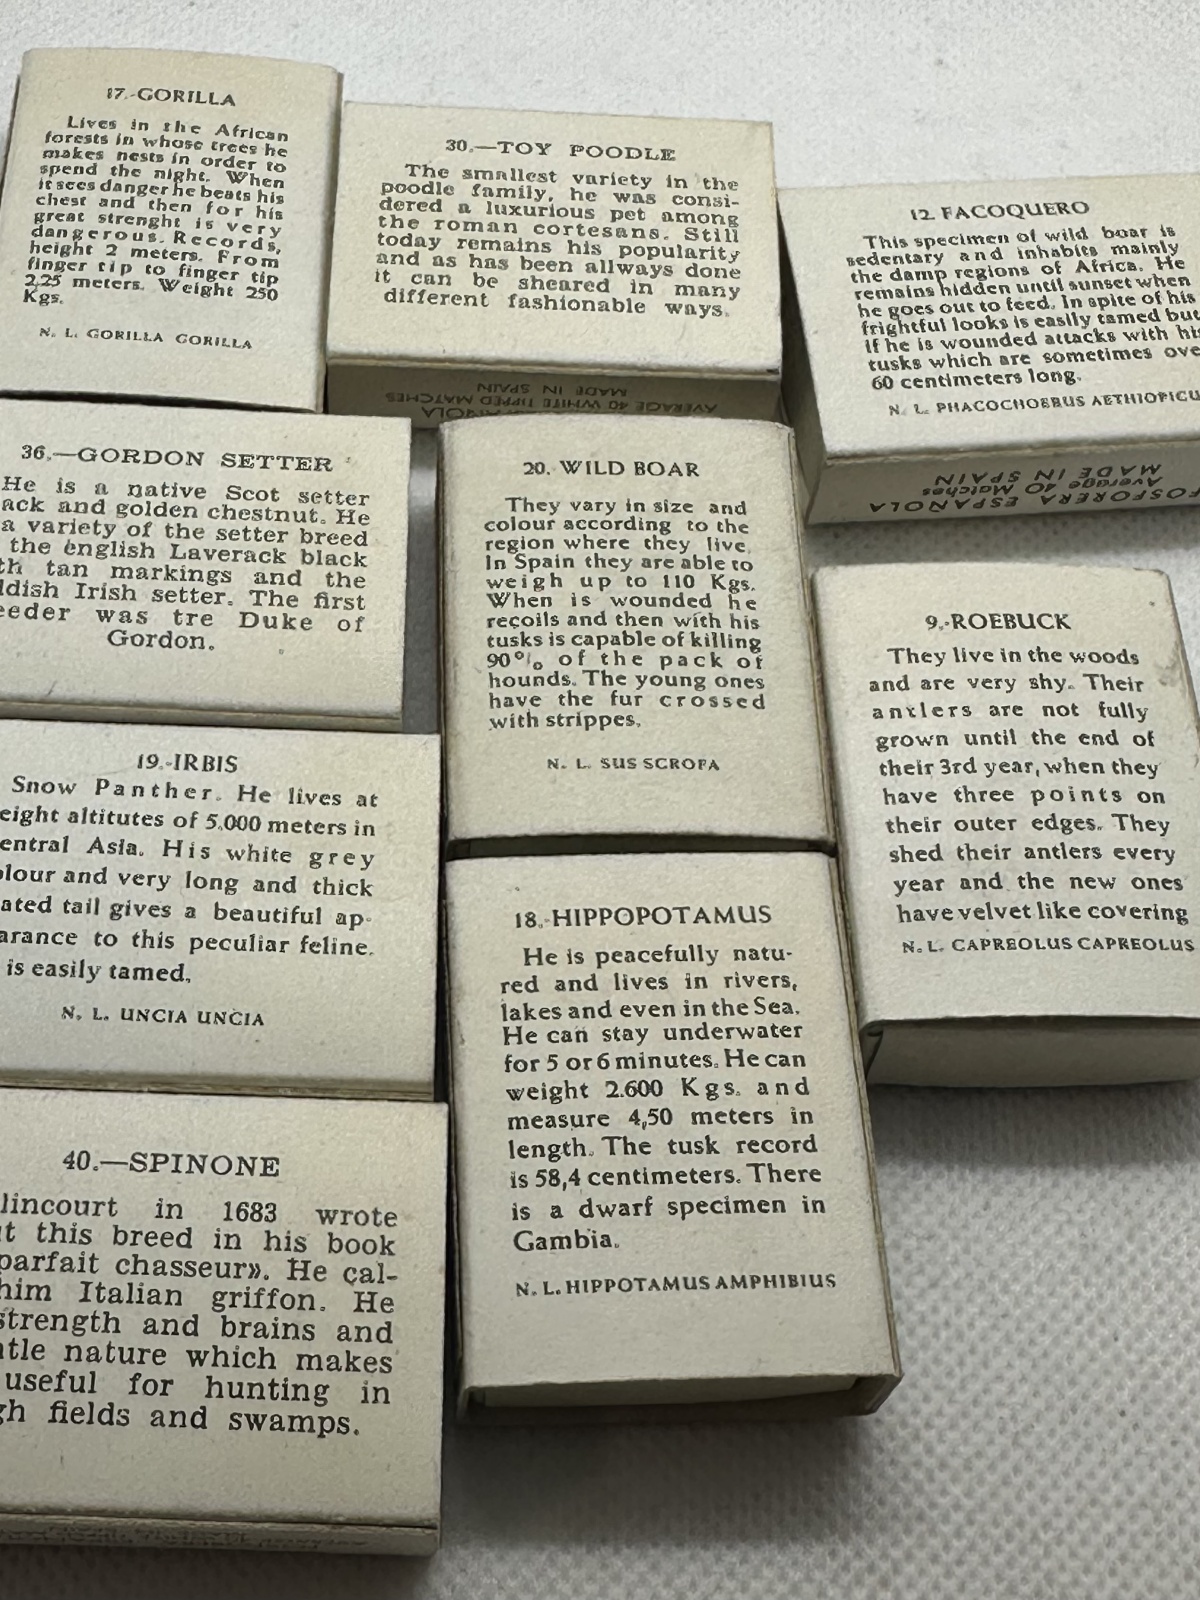 17.-GORILLA
Lives in the African
forests in whose trees he
makes nests in order to
spend the night. When
it sees danger he beats his
chest and then for his
great strenght is very
dangerous. Records,
height 2 meters. From
finger tip to finger tip
2,25 meters. Weight 250
Kgs.
N. L. GORILLA GORILLA
30.—TOY POODLE
The smallest variety in the
poodle family, he was consi-
dered a luxurious pet among
the roman cortesans. Still
today remains his popularity
and as has been allways done
it can be sheared in many
different fashionable ways.
AVERAGE 40 WHITE TIPPED MATCHES
MADE IN SPAIN
12. FACOQUERO
This specimen of wild boar is
sedentary and inhabits mainly
the damp regions of Africa. He
remains hidden until sunset when
he goes out to feed. In spite of his
frightful looks is easily tamed but
if he is wounded attacks with his
tusks which are sometimes over
60 centimeters long.
N. L. PHACOCHOERUS AETHIOPICU
FOSFORERA ESPAÑOLA
Average 40 Matches
MADE IN SPAIN
36.—GORDON SETTER
He is a native Scot setter
ack and golden chestnut. He
a variety of the setter breed
the english Laverack black
th tan markings and the
ddish Irish setter. The first
eeder was tre Duke of
Gordon.
20. WILD BOAR
They vary in size and
colour according to the
region where they live.
In Spain they are able to
weigh up to 110 Kgs.
When is wounded he
recoils and then with his
tusks is capable of killing
90% of the pack of
hounds. The young ones
have the fur crossed
with strippes.
N. L. SUS SCROFA
9.-ROEBUCK
They live in the woods
and are very shy. Their
antlers are not fully
grown until the end of
their 3rd year, when they
have three points on
their outer edges. They
shed their antlers every
year and the new ones
have velvet like covering
N. L. CAPREOLUS CAPREOLUS
19.-IRBIS
Snow Panther. He lives at
eight altitutes of 5.000 meters in
entral Asia. His white grey
olour and very long and thick
ated tail gives a beautiful ap-
arance to this peculiar feline.
is easily tamed.
N. L. UNCIA UNCIA
18.-HIPPOPOTAMUS
He is peacefully natu-
red and lives in rivers,
lakes and even in the Sea.
He can stay underwater
for 5 or 6 minutes. He can
weight 2.600 Kgs. and
measure 4,50 meters in
length. The tusk record
is 58,4 centimeters. There
is a dwarf specimen in
Gambia.
N. L. HIPPOTAMUS AMPHIBIUS
40.—SPINONE
lincourt in 1683 wrote
t this breed in his book
parfait chasseur». He cal-
him Italian griffon. He
strength and brains and
ntle nature which makes
useful for hunting in
gh fields and swamps.